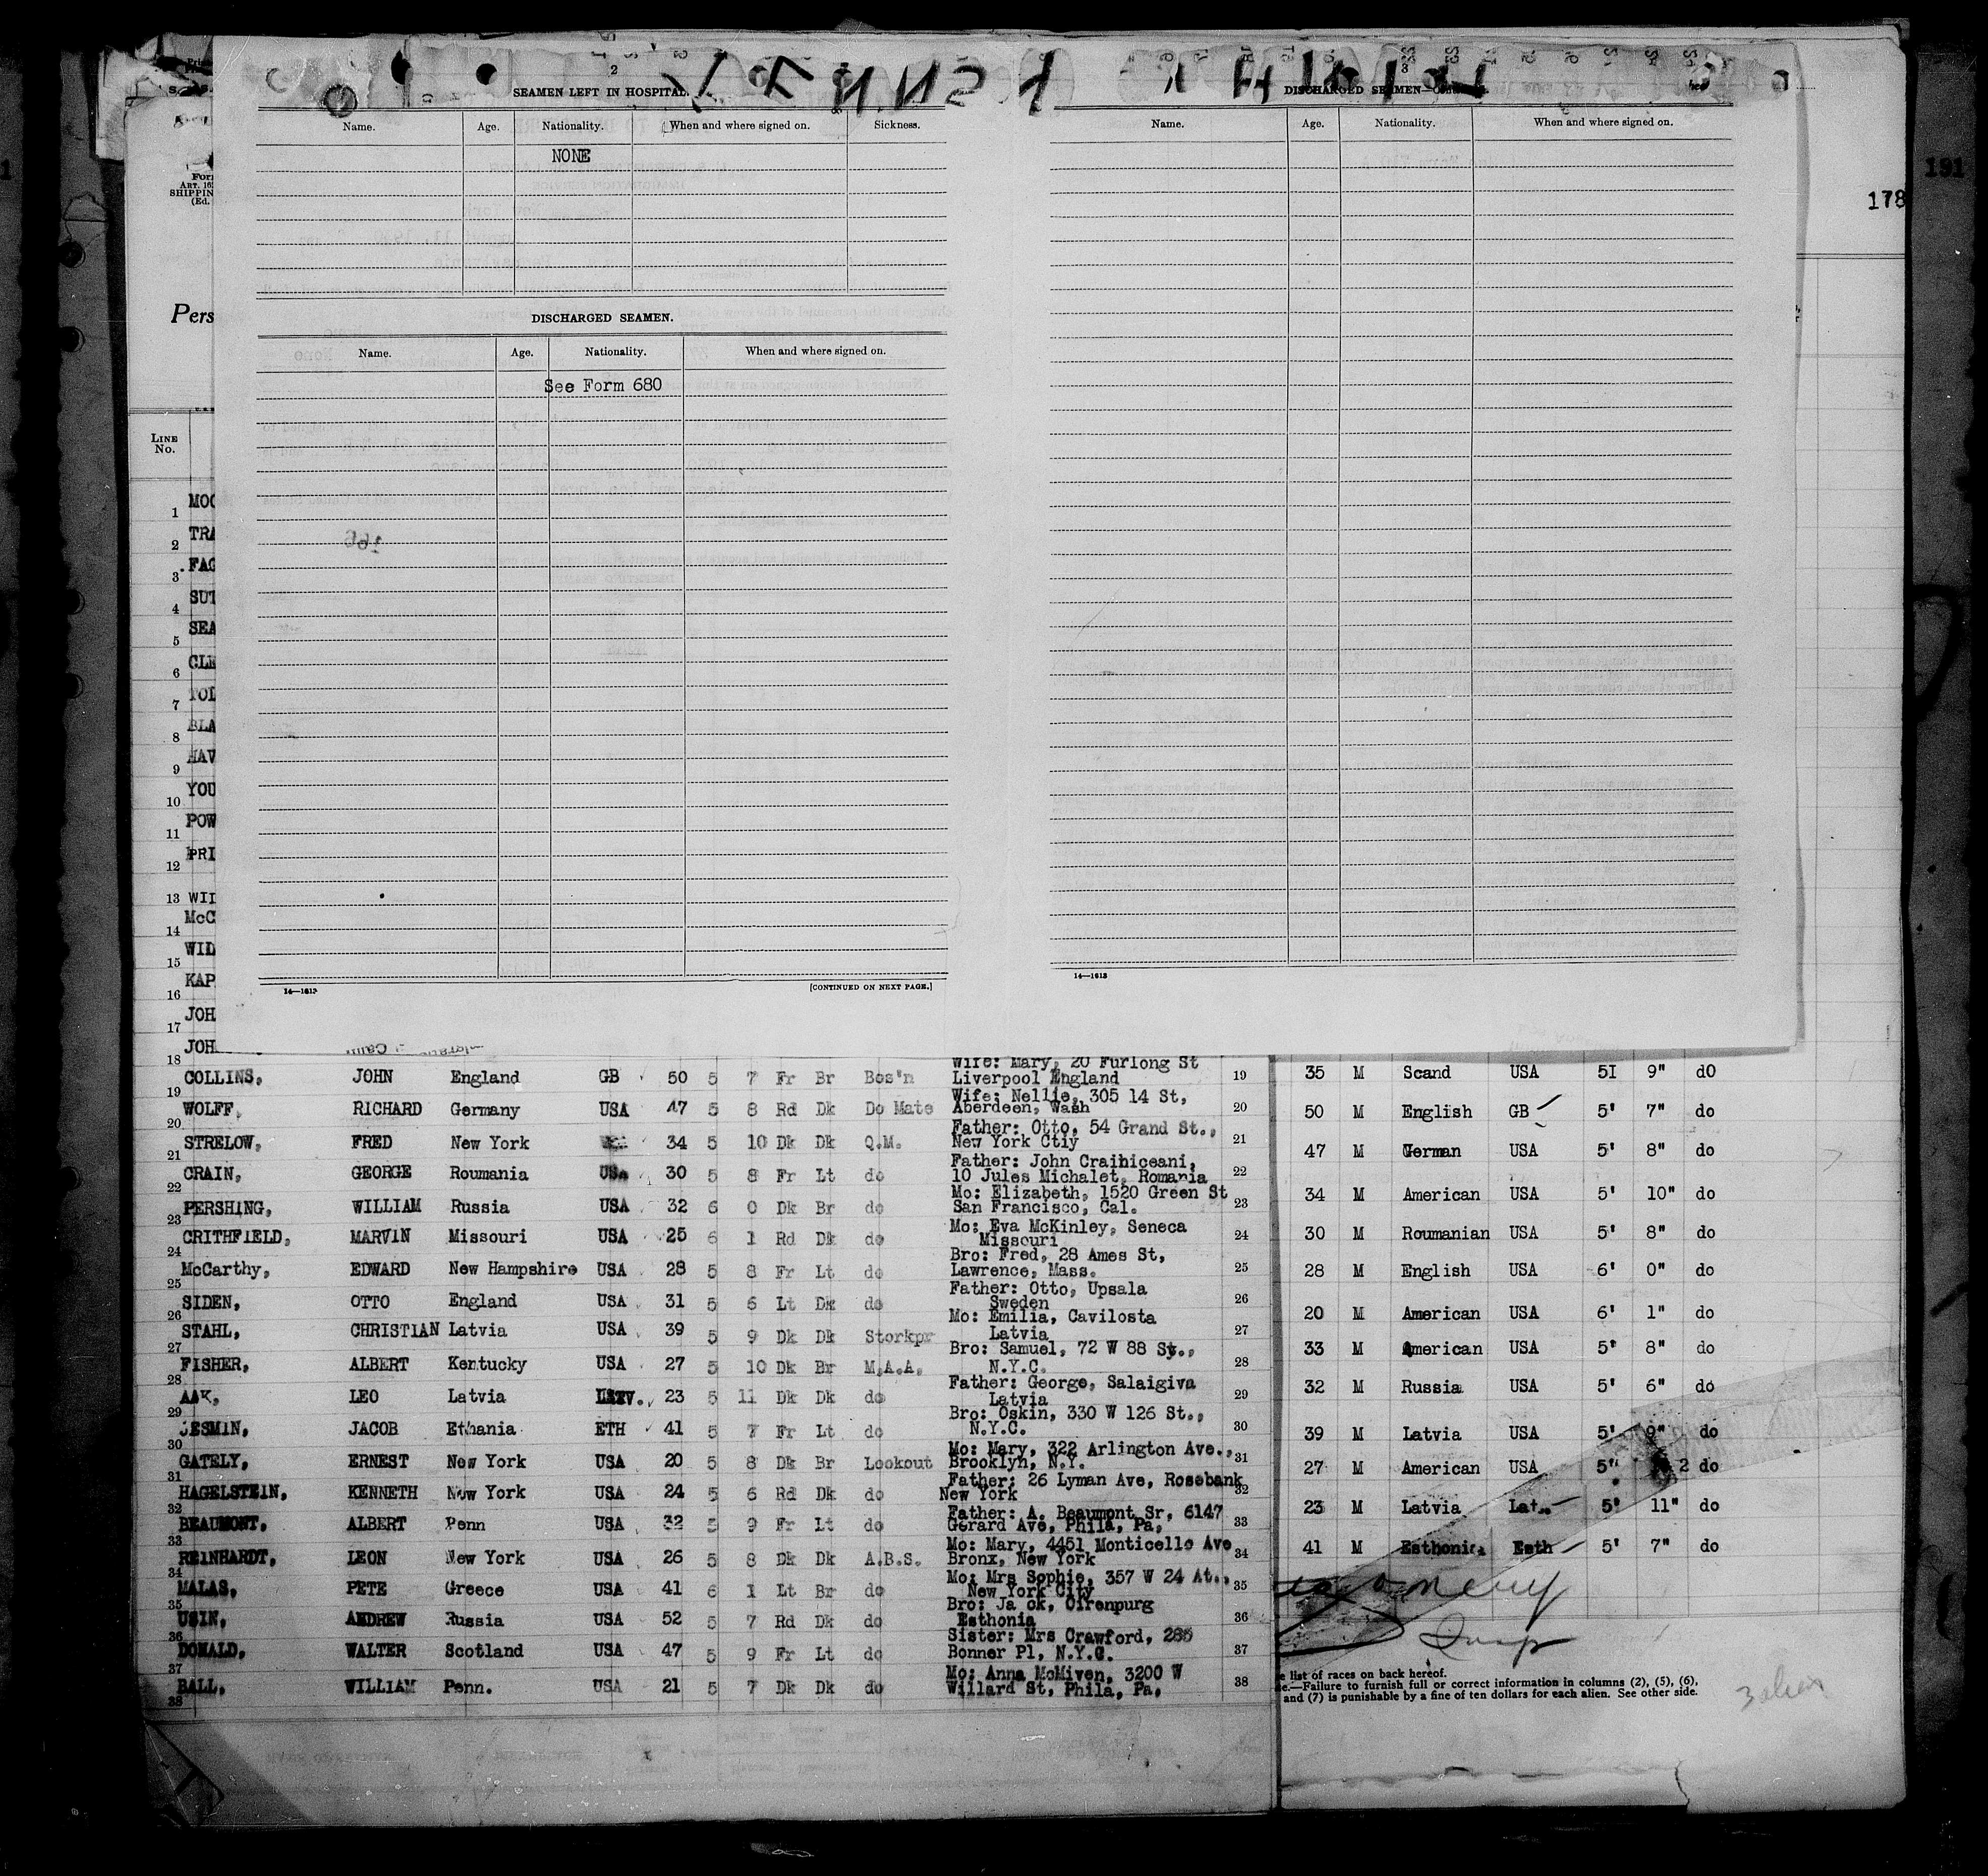 2
SEAMEN LEFT IN HOSPITAL.
Name. Age. Nationality. When and where signed on. Sickness.
NONE
DISCHARGED SEAMEN.
Name. Age. Nationality. When and where signed on.
See Form 680
166
14—1613
[CONTINUED ON NEXT PAGE.]
3
DISCHARGED SEAMEN—
Name. Age. Nationality. When and where signed on.
14—1613
191
178
ART. 16
SHIPPIN
(Ed.
Pers
LINE
No.
1 MOO
2 TRA
3 FAG
4 SUT
5 SEA
6 CLE
7 TOL
8 BLA
9 HAV
10 YOU
11 POW
12 PRI
13 WIL
McC
14
WIL
15
KAP
16
JOH
17
JOH
18
Wife: Mary, 20 Furlong St
COLLINS, JOHN England GB 50 5 7 Fr Br Bos'n Liverpool England 19
19
Wife: Nellie, 305 14 St,
WOLFF, RICHARD Germany USA 47 5 8 Rd Dk Do Mate Aberdeen, Wash 20
20
Father: Otto, 54 Grand St.,
STRELOW, FRED New York 34 5 10 Dk Dk Q.M. New York Ctiy 21
21
Father: John Crainiceani,
CRAIN, GEORGE Roumania USA 30 5 8 Fr Lt do 10 Jules Michalet, Romania 22
22
Mo: Elizabeth, 1520 Green St
PERSHING, WILLIAM Russia USA 32 6 0 Dk Br do San Francisco, Cal. 23
23
Mo: Eva McKinley, Seneca
CRITHFIELD, MARVIN Missouri USA 25 6 1 Rd Dk do Missouri 24
24
Bro: Fred, 28 Ames St,
McCarthy, EDWARD New Hampshire USA 28 5 8 Fr Lt do Lawrence, Mass. 25
25
Father: Otto, Upsala
SIDEN, OTTO England USA 31 5 6 Lt Dk do Sweden 26
26
Mo: Emilia, Cavilosta
STAHL, CHRISTIAN Latvia USA 39 5 9 Dk Dk Storkpr Latvia 27
27
Bro: Samuel, 72 W 88 St.,
FISHER, ALBERT Kentucky USA 27 5 10 Dk Br M.A.A. N.Y.C. 28
28
Father: George, Salaigiva
AAK, LEO Latvia 23 5 11 Dk Dk do Latvia 29
29
Bro: Oskin, 330 W 126 St.,
JESMIN, JACOB Ethania ETH 41 5 7 Fr Lt do N.Y.C. 30
30
Mo: Mary, 322 Arlington Ave.,
GATELY, ERNEST New York USA 20 5 8 Dk Br Lookout Brooklyn, N.Y. 31
31
Father: 26 Lyman Ave, Rosebank
HAGELSTEIN, KENNETH New York USA 24 5 6 Rd Dk do New York 32
32
Father: A. Beaumont Sr, 6147
BEAUMONT, ALBERT Penn USA 32 5 9 Fr Lt do Gerard Ave, Phila, Pa, 33
33
Mo: Mary, 4451 Monticello Ave
REINHARDT, LEON New York USA 26 5 8 Dk Dk A.B.S. Bronx, New York 34
34
Mo: Mrs Sophie, 357 W 24 At.,
MALAS, PETE Greece USA 41 6 1 Lt Br do New York City 35
35
Bro: Ja ck, Oirenpurg
USIN, ANDREW Russia USA 52 5 7 Rd Dk do Esthonia 36
36
Sister: Mrs Crawford, 285
DONALD, WALTER Scotland USA 47 5 9 Fr Lt do Bonner Pl, N.Y.C. 37
37
Mo: Anna McMiven, 3200 W
BALL, WILLIAM Penn. USA 21 5 7 Dk Dk do Willard St, Phila, Pa, 38
38
35 M Scand USA 5I 9" dO
50 M English GB 5' 7" do
47 M German USA 5' 8" do
34 M American USA 5' 10" do
30 M Roumanian USA 5' 8" do
28 M English USA 6' 0" do
20 M American USA 6' 1" do
33 M American USA 5' 8" do
32 M Russia USA 5' 6" do
39 M Latvia USA 5' 9" do
27 M American USA 5" 2 do
23 M Latvia Lat. 5' 11" do
41 M Esthonia Esth 5' 7" do
e list of races on back hereof.
e.—Failure to furnish full or correct information in columns (2), (5), (6),
and (7) is punishable by a fine of ten dollars for each alien. See other side.
3 alien